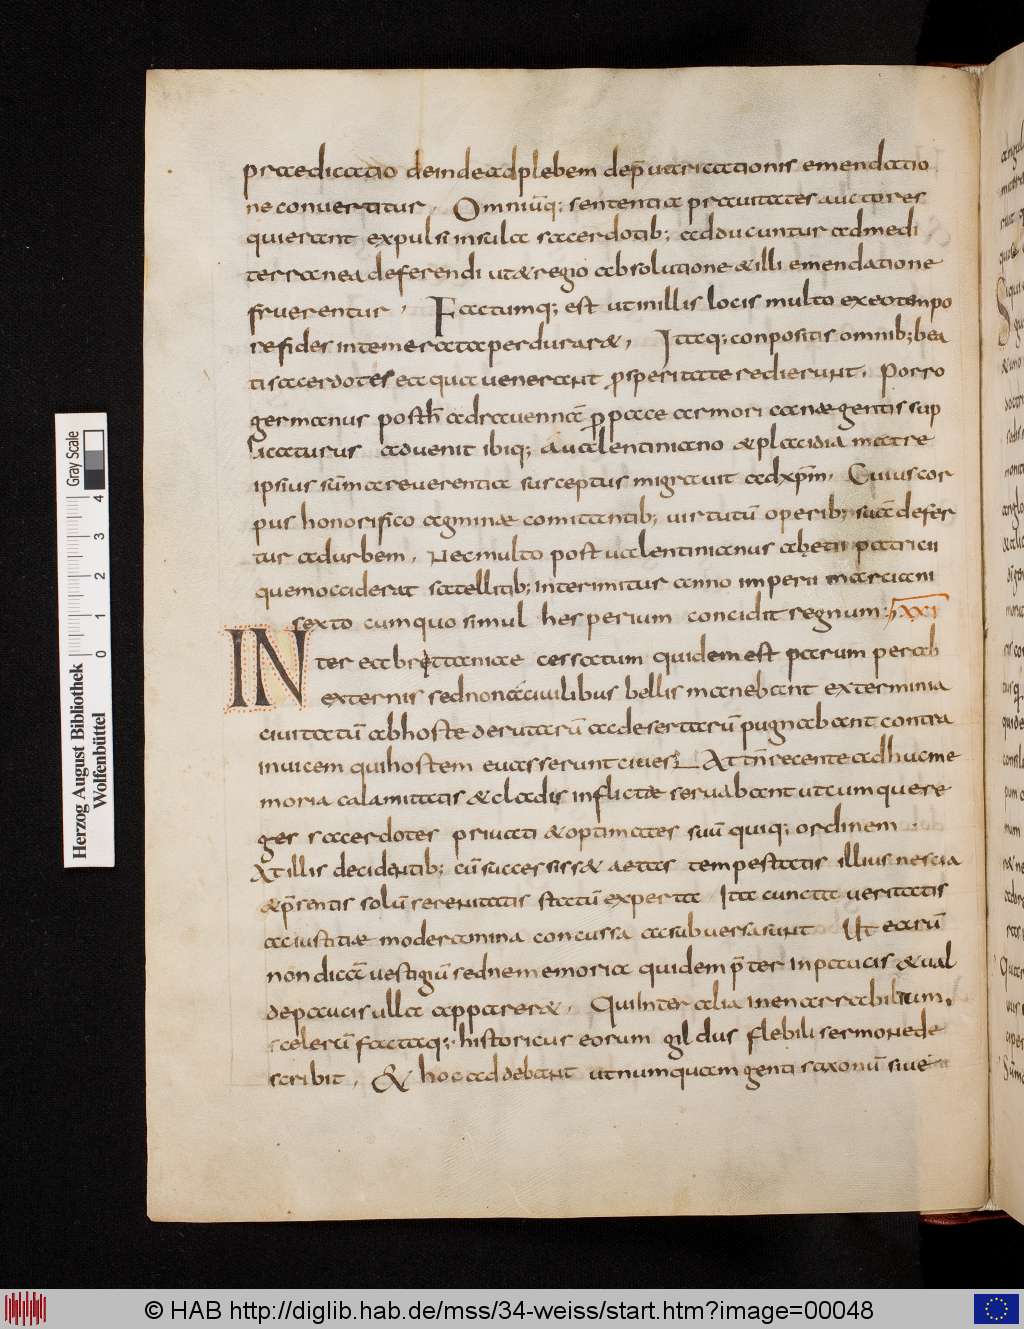 praedicatio deinde ad plebem dep̄uaricationis emendatio
ne conuertitur. Omniūq; sententia prauitatis auctores
qui erant expulsi insula sacerdotib; adducuntur ad medi
terranea deferendi ut & regio absolutione & illi emendatione
fruerentur. Factumq; est ut in illis locis multo ex eo tempo
re fides intemerata perdurar&. Itaq; conpositis omnib; bea
ti sacerdotes ea qua uenerant prosperitate redierunt. Porro
germanus post h̄ ad rauennā p pace armoricanae gentis sup
licaturus aduenit ibiq; a ualentiniano & placidia matre
ipsius sūma reuerentia susceptus migrauit ad xp̄m. Cuius cor
pus honorifico agmine comitantib; uirtutū operib; suā defer
tur ad urbem. Nec multo post ualentinianus ab etii patricii
quem occiderat satellitib; interimitur anno imperii marciani
sexto cum quo simul hesperium concidit regnum; XXI
INter ea brettaniae cessatum quidem est parum per ab
externis sed non a ciuilibus bellis manebant exterminia
ciuitatū ab hoste derutarū ac desertarū pugnabant contra
inuicem qui hostem euaserunt ciues. At tn̄ recente adhuc me
moria calamitatis & cladis inflictae seruabant utcumque re
ges sacerdotes priuati & optimates suū quiq; ordinem.
At illis decidentib; cū successiss& aetas tempestatis illius nescia
& p̄sentis solū serenitatis statū experta Ita cuncta ueritatis
ac iustitiae moderamina concussa ac subuersa sunt Ut earū
non dicā uestigiū sed ne memoria quidem p̄ter in paucis & ual
de paucis ulla apparer&. Qui Inter alia inenarrabilium
scelerū facta q; historicus eorum gildus flebili sermone de
scribit. & hoc addebant ut numquam genti saxonū siue
Herzog August Bibliothek
Wolfenbüttel
0 1 2 3 4
Gray Scale
© HAB http://diglib.hab.de/mss/34-weiss/start.htm?image=00048